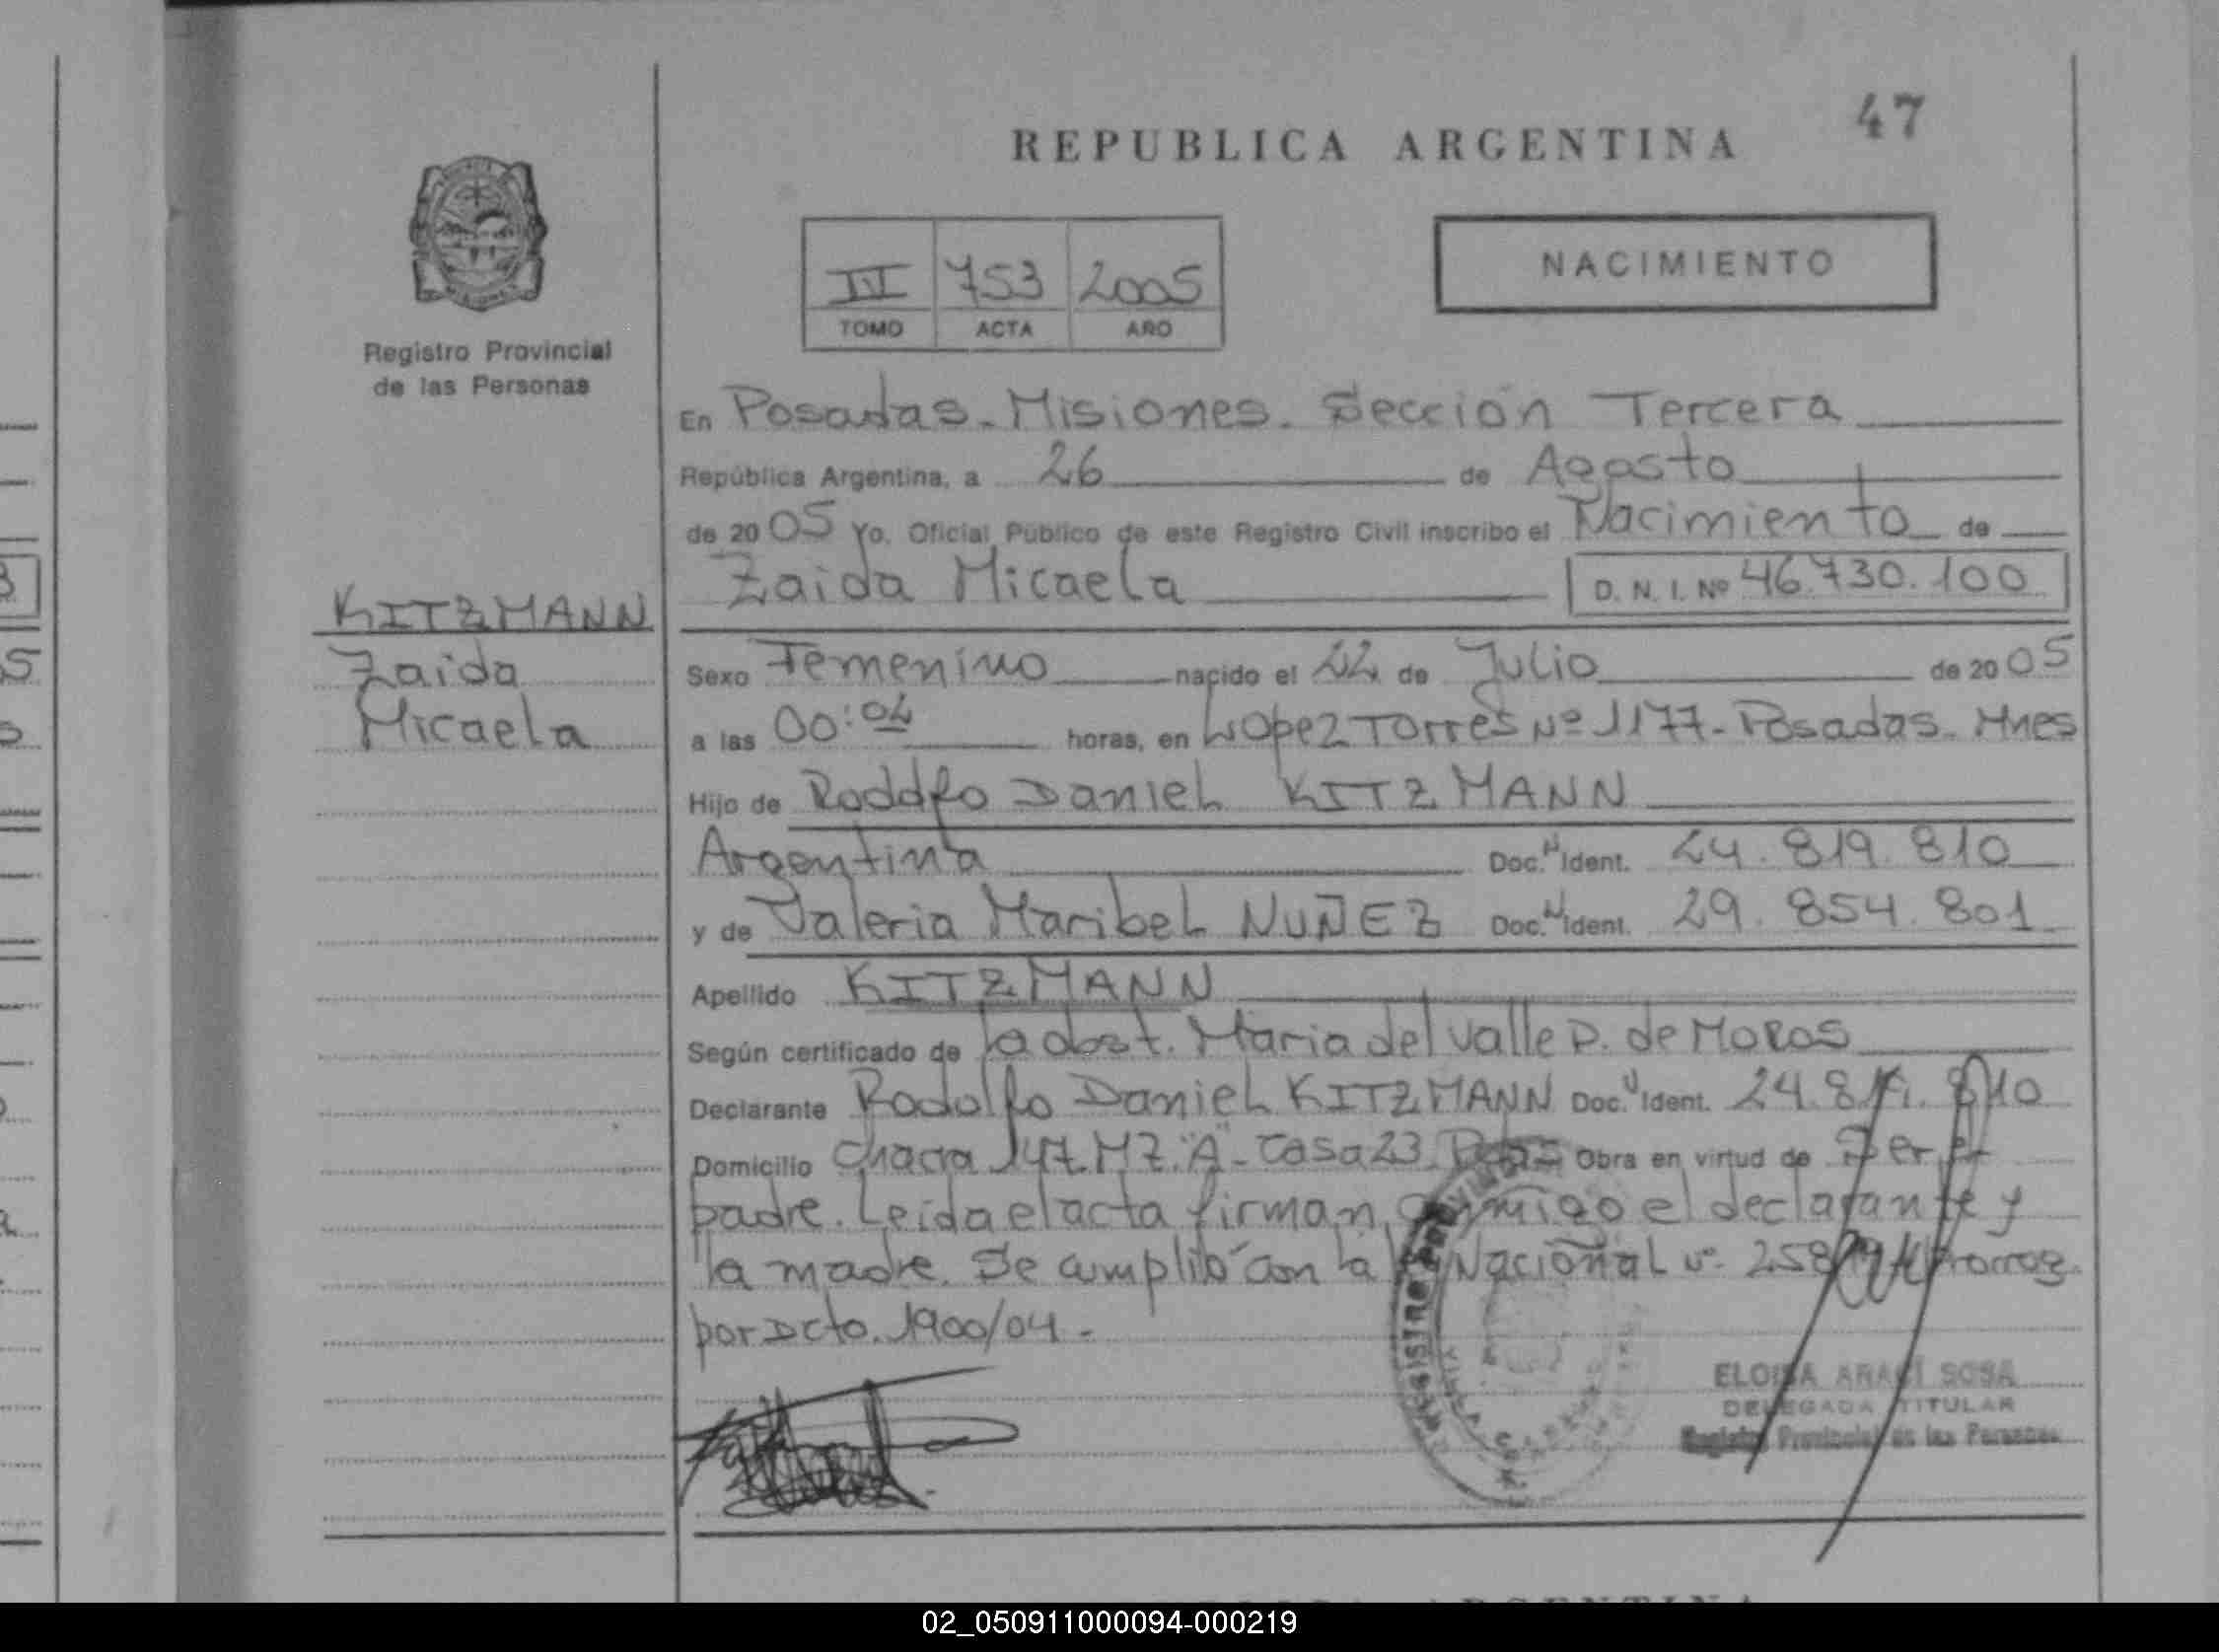 47
REPUBLICA ARGENTINA
NACIMIENTO
III 753 2005
TOMO ACTA AÑO
Registro Provincial
de las Personas
En Posadas - Misiones. Sección Tercera
República Argentina, a 26 de Agosto
de 2005 Yo, Oficial Público de este Registro Civil inscribo el Nacimiento de
Zaida Micaela D. N. I. Nº 46.730.100
KITZMANN
Zaida
Micaela
Sexo Femenino nacido el 22 de Julio de 2005
a las 00:04 horas, en Lopez Torres Nº 1177 - Posadas - Mnes
Hijo de Rodolfo Daniel KITZMANN
Argentina Doc. N Ident. 24.819.810
y de Valeria Maribel NUÑEZ Doc. N Ident. 29.854.801
Apellido KITZMANN
Según certificado de la obst. Maria del Valle D. de MOROS
Declarante Rodolfo Daniel KITZMANN Doc. N Ident. 24.819.810
Domicilio Chacra 147 MZ. "A" - Casa 23 Obra en virtud de Ser el
padre. Leída el acta firman conmigo el declarante y
la madre. Se cumplió con la Nacional nº
por Dcto. 1900/04 -
REGISTRO PROVINCIAL
ELOISA ARACÍ SOSA
DELEGADA TITULAR
Registro Provincial de las Personas
02_050911000094-000219